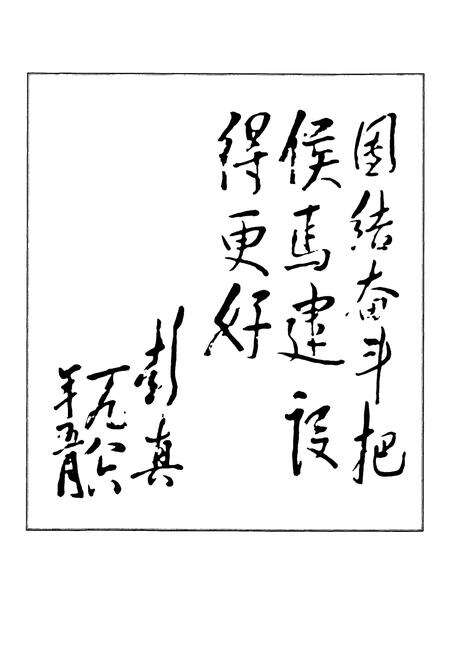 团结奋斗把
侯马建设
得更好
彭真
一九八六
年五月